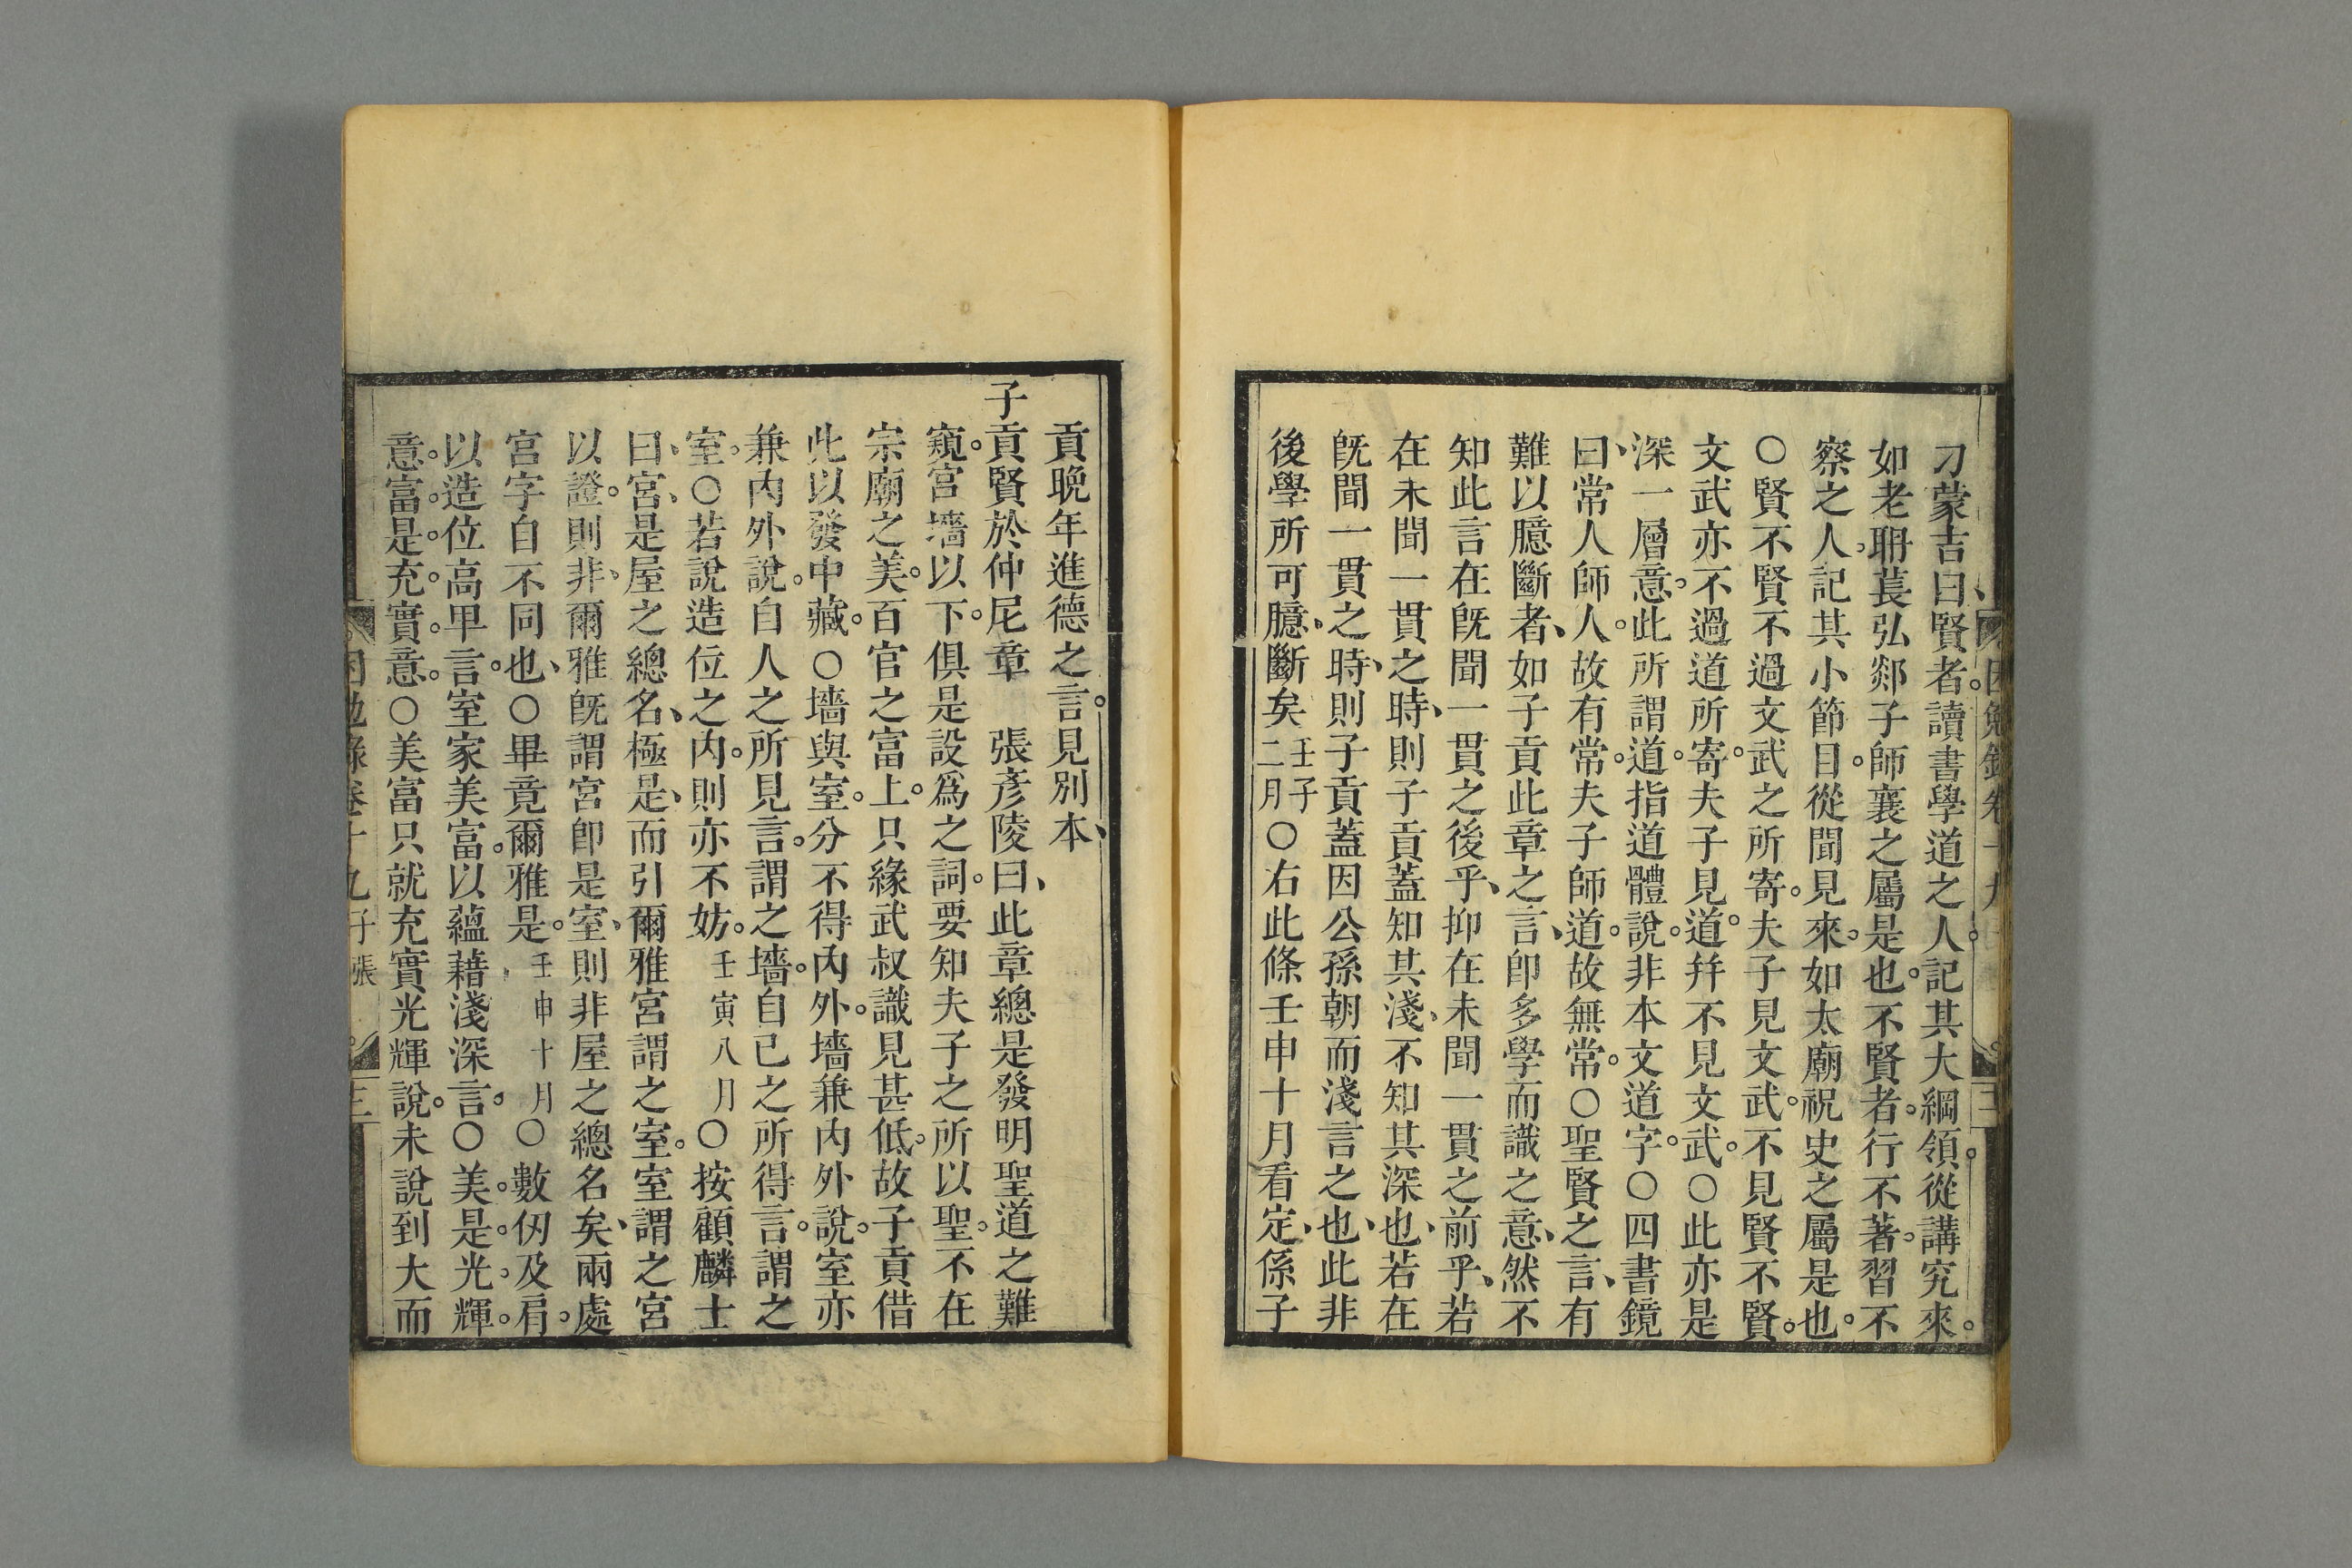 刁蒙吉曰賢者讀書學道之人記其大綱領從講究來
如老聃萇弘郯子師襄之屬是也不賢者行不著習不
察之人記其小節目從聞見來如太廟祝史之屬是也
○賢不賢不過文武之所寄夫子見文武不見賢不賢
文武亦不過道所寄夫子見道幷不見文武○此亦是
深一層意此所謂道指道體說非本文道字○四書鏡
曰常人師人故有常夫子師道故無常○聖賢之言有
難以臆斷者如子貢此章之言卽多學而識之意然不
知此言在旣聞一貫之後乎抑在未聞一貫之前乎若
在未聞一貫之時則子貢蓋知其淺不知其深也若在
旣聞一貫之時則子貢蓋因公孫朝而淺言之也此非
後學所可臆斷矣壬子二月○右此條壬申十月看定係子
貢晚年進德之言見別本
子貢賢於仲尼章　張彥陵曰此章總是發明聖道之難
窺宮墻以下俱是設爲之詞要知夫子之所以聖不在
宗廟之美百官之富上只緣武叔識見甚低故子貢借
此以發中藏○墻與室分不得內外墻兼內外說室亦
兼內外說自人之所見言謂之墻自已之所得言謂之
室○若說造位之內則亦不妨壬寅八月○按顧麟士
曰宮是屋之總名極是而引爾雅宮謂之室室謂之宮
以證則非爾雅旣謂宮卽是室則非屋之總名矣兩處
宮字自不同也○畢竟爾雅是壬申十月○數仞及肩
以造位高甲言室家美富以蘊藉淺深言○美是光輝
意富是充實意○美富只就充實光輝說未說到大而
困勉錄卷十九子張